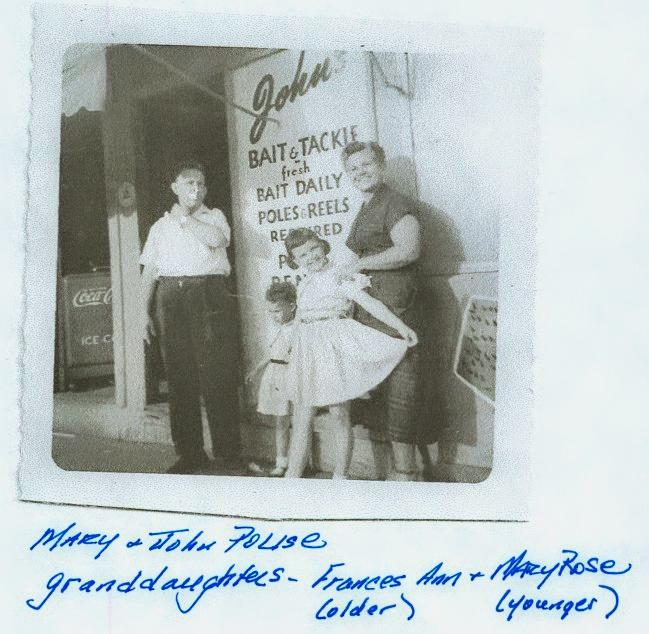 John's
BAIT & TACKLE
fresh
BAIT DAILY
POLES & REELS
Coca-Cola
ICE
MARY + John Polise
granddaughters - Frances Ann + Mary Rose
(older) (younger)